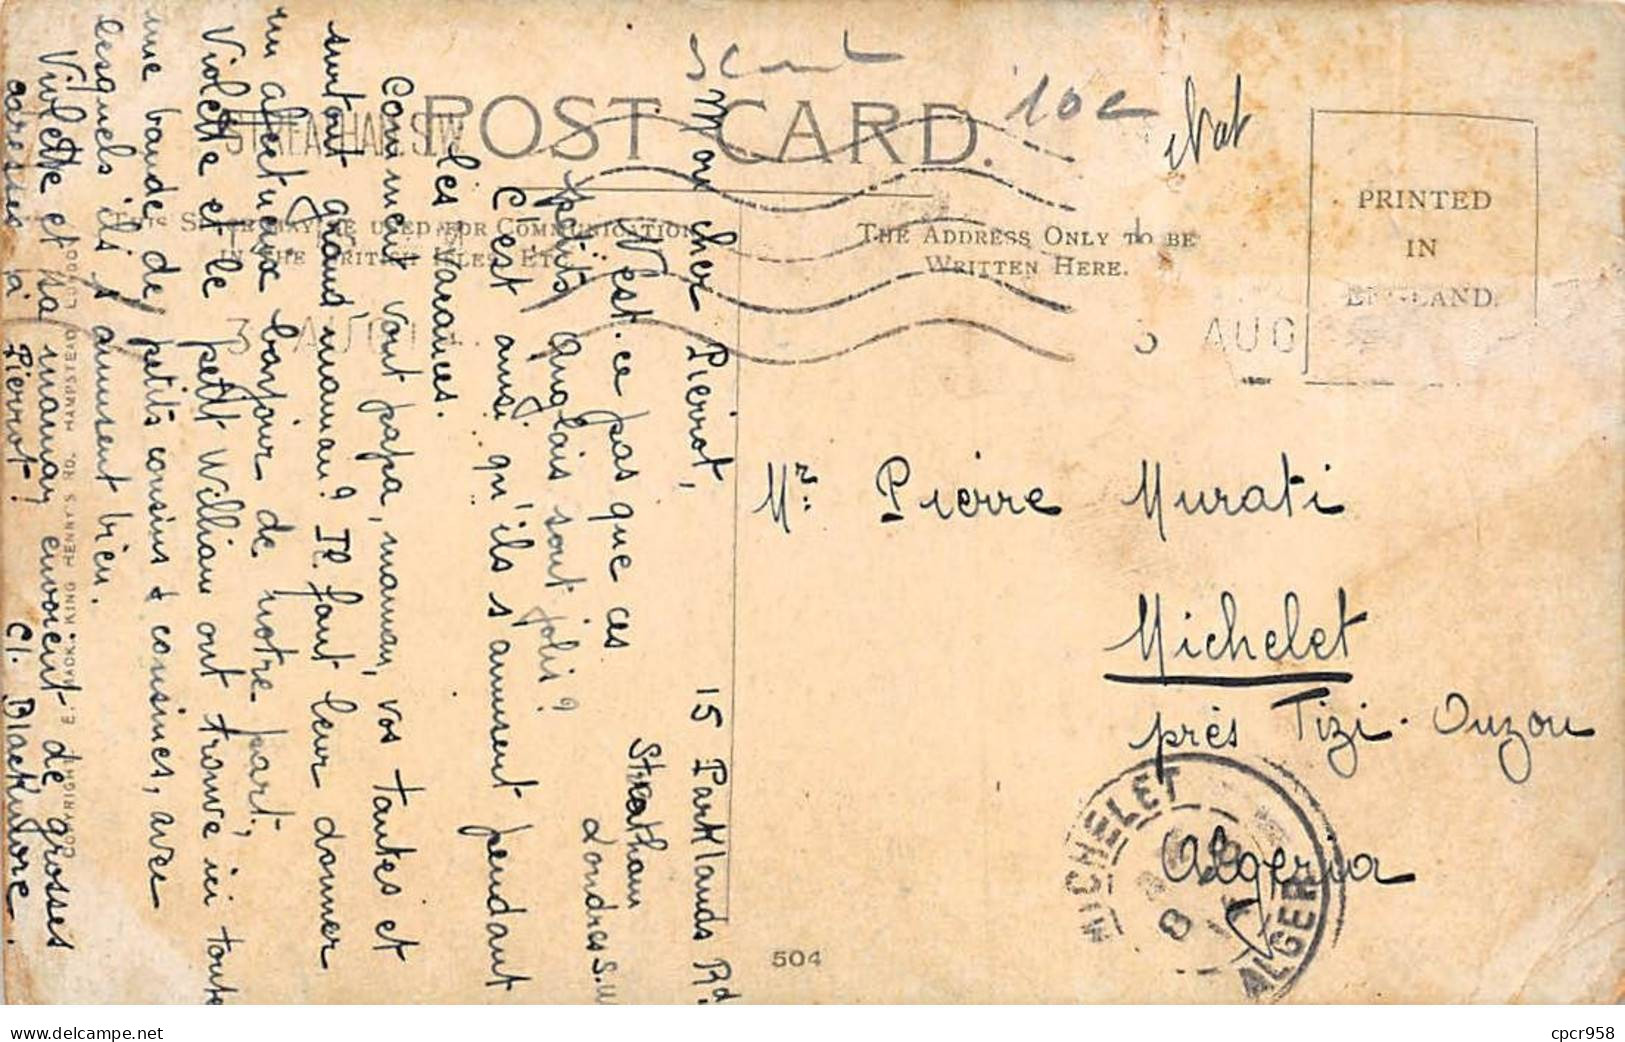 scout
10 c
POST CARD.
This Space may be used for Communication
in the British Isles, Etc.
The Address Only to be
Written Here.
PRINTED
IN
ENGLAND.
STREATHAM. S.W.
3 AUG
3 AUG
15 Parklands Rd.
Streatham
Londres S.W
Mon cher Pierrot,
N'est-ce pas que ces
petits Anglais sont jolis?
C'est ainsi qu'ils s'amusent pendant
les vacances.
Comment vont papa, maman, vos tantes et
surtout grand'maman? Il faut leur donner
un affectueux bonjour de notre part;
Violette et le petit William ont trouvé ici toute
une bande de petits cousins & cousines, avec
lesquels ils s'amusent bien.
Violette et sa maman envoient de grosses
caresses à Pierrot! Cl. Blackmore.
Mr. Pierre Murati
Michelet
près Tizi-Ouzou
Algeria
MICHELET
ALGER
8
504
COPYRIGHT E. MACK. KING HENRY'S RD. HAMPSTEAD LONDON
cpcr958
delcampe.net